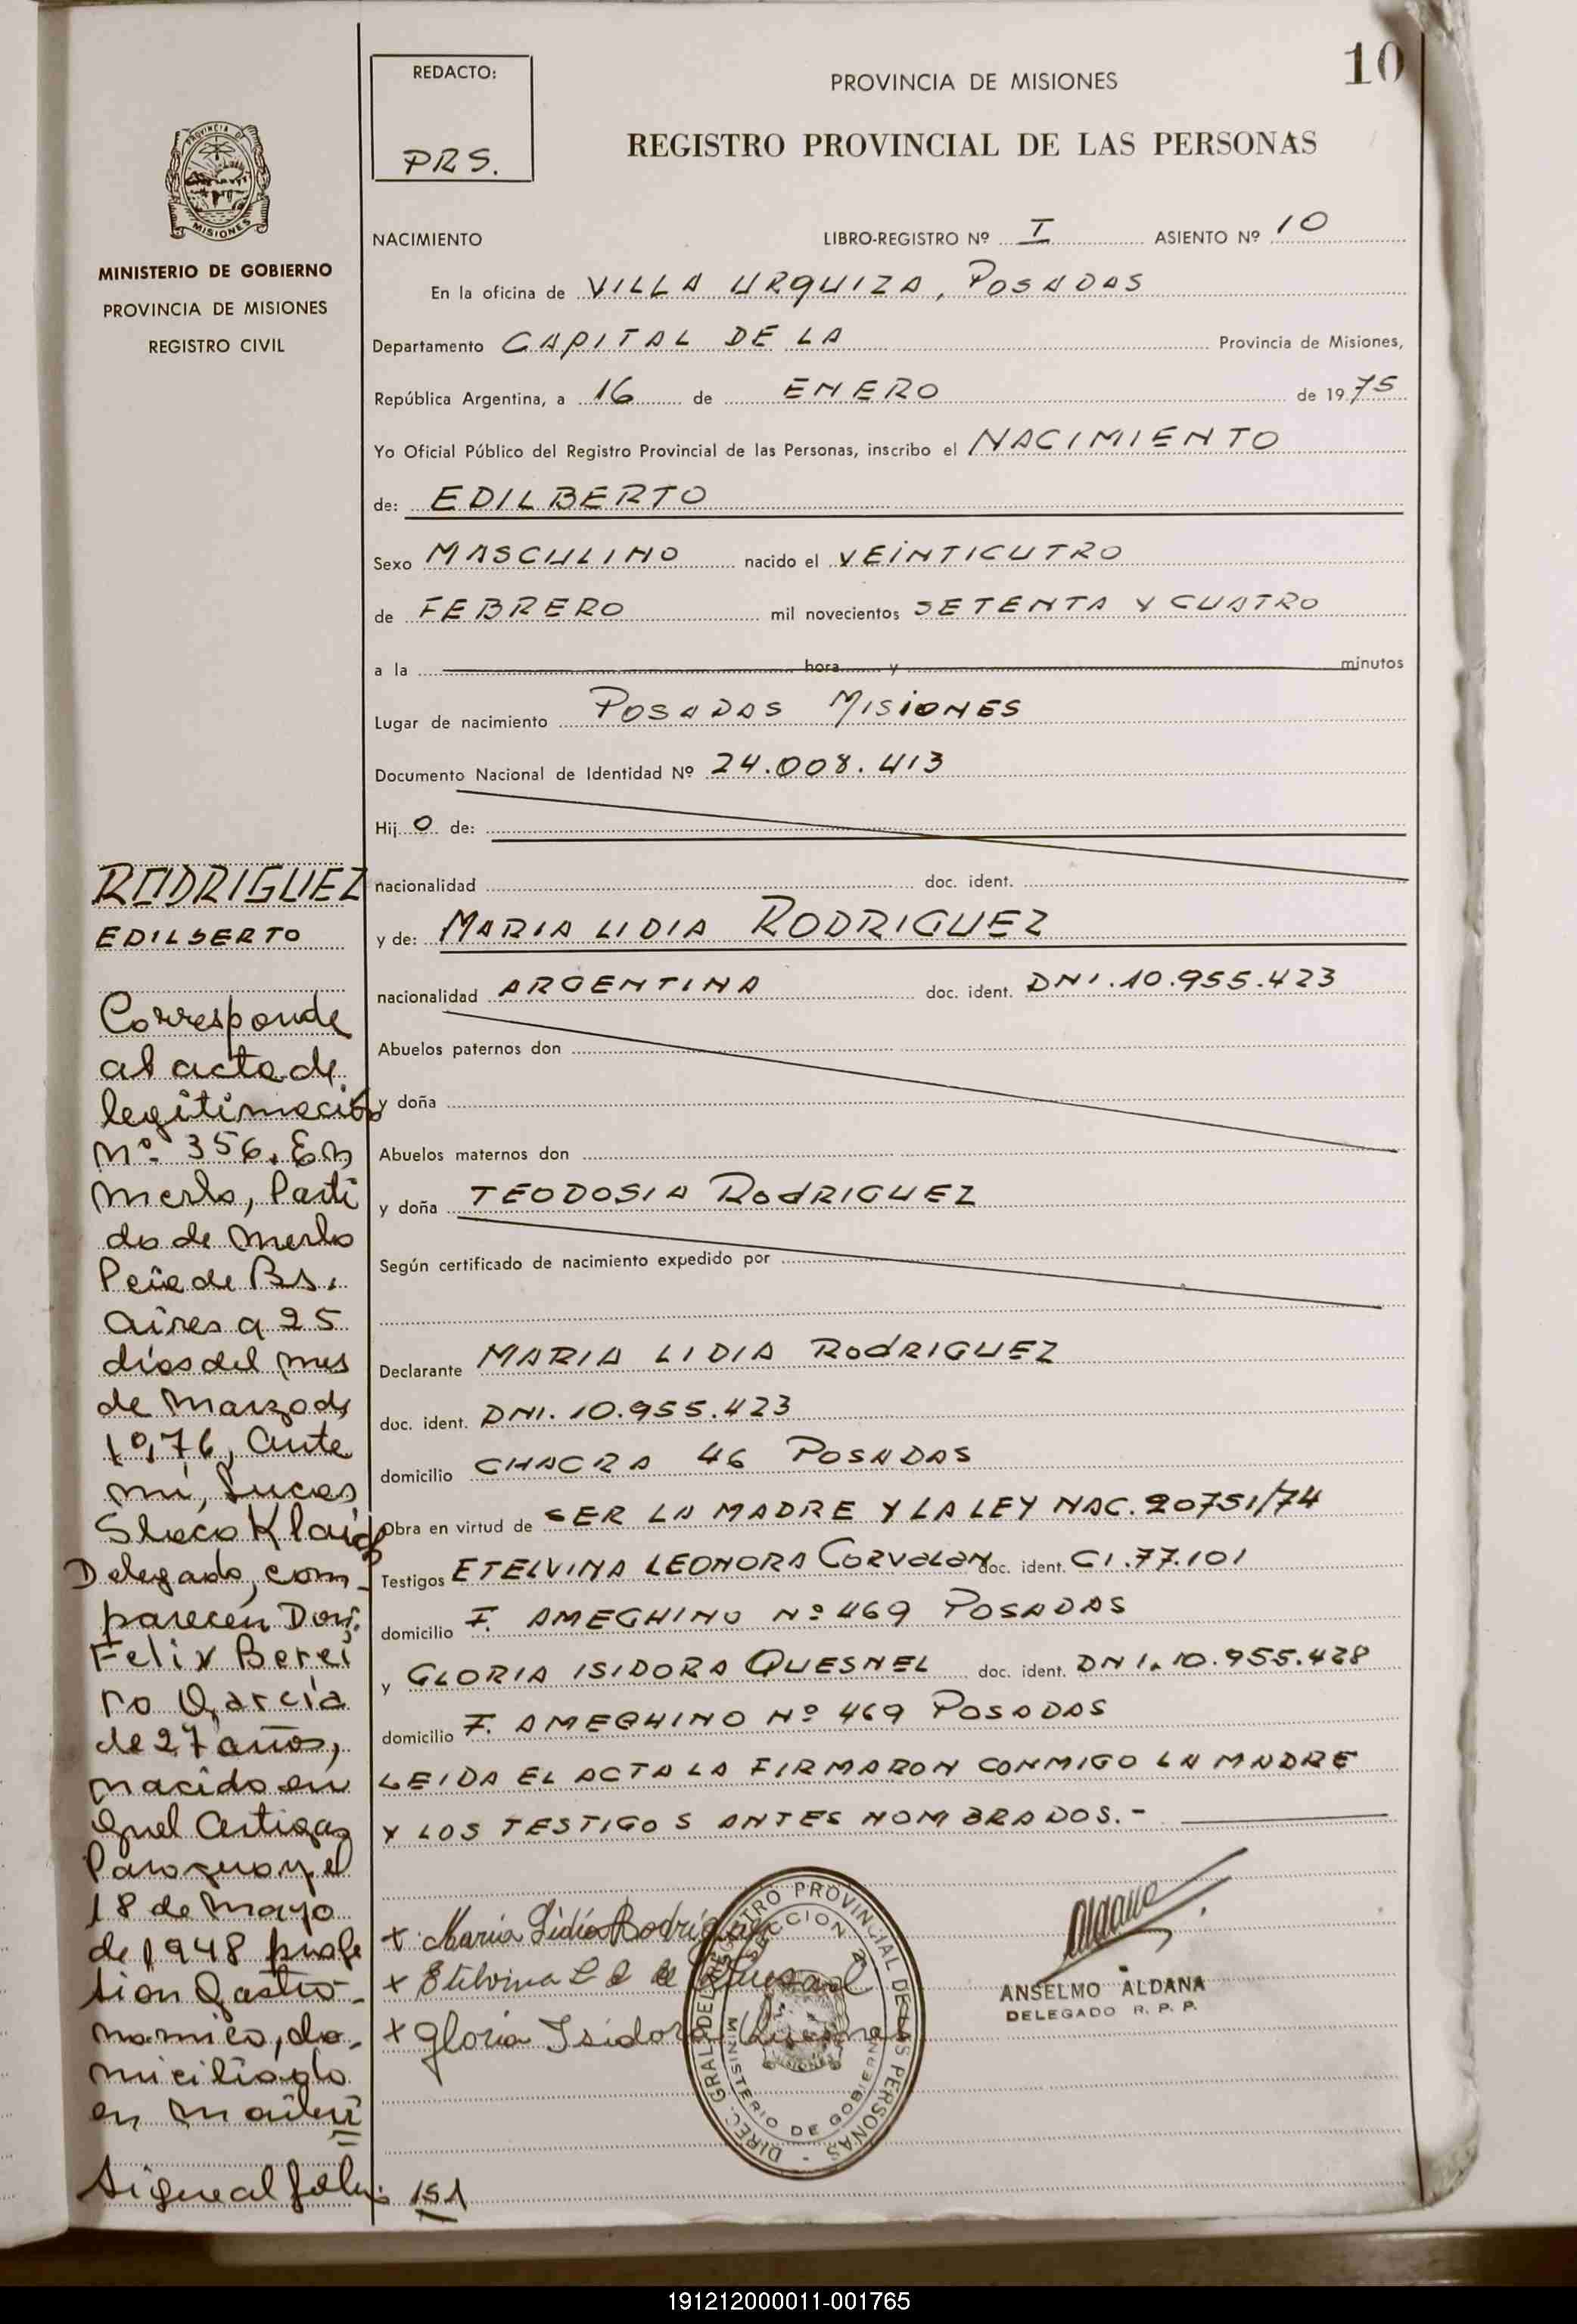 10
REDACTO:
PRS.
PROVINCIA DE MISIONES
REGISTRO PROVINCIAL DE LAS PERSONAS
PROVINCIA DE
MISIONES
MINISTERIO DE GOBIERNO
PROVINCIA DE MISIONES
REGISTRO CIVIL
NACIMIENTO LIBRO-REGISTRO Nº I ASIENTO Nº 10
En la oficina de VILLA URQUIZA, POSADAS
Departamento CAPITAL DE LA Provincia de Misiones,
República Argentina, a 16 de ENERO de 1975
Yo Oficial Público del Registro Provincial de las Personas, inscribo el NACIMIENTO
de: EDILBERTO
Sexo MASCULINO nacido el VEINTICUTRO
de FEBRERO mil novecientos SETENTA Y CUATRO
a la hora y minutos
Lugar de nacimiento POSADAS MISIONES
Documento Nacional de Identidad Nº 24.008.413
Hijo de:
nacionalidad doc. ident.
y de: MARIA LIDIA RODRIGUEZ
nacionalidad ARGENTINA doc. ident. DNI.10.955.423
Abuelos paternos don
y doña
Abuelos maternos don
y doña TEODOSIA RODRIGUEZ
Según certificado de nacimiento expedido por
Declarante MARIA LIDIA RODRIGUEZ
doc. ident. DNI.10.955.423
domicilio CHACRA 46 POSADAS
Obra en virtud de SER LA MADRE Y LA LEY NAC. 20751/74
Testigos ETELVINA LEONORA CORVALAN doc. ident. CI.77.101
domicilio F. AMEGHINO Nº 469 POSADAS
y GLORIA ISIDORA QUESNEL doc. ident. DNI.10.955.428
domicilio F. AMEGHINO Nº 469 POSADAS
LEIDA EL ACTA LA FIRMARON CONMIGO LA MADRE
Y LOS TESTIGOS ANTES NOMBRADOS.-
x Maria Lidia Rodriguez
x Etelvina L C de Quesnel
x Gloria Isidora Quesnel
DIREC. GRAL. DEL REGISTRO PROVINCIAL DE LAS PERSONAS
SECCION 2ª
MINISTERIO DE GOBIERNO
MISIONES
Aldana
ANSELMO ALDANA
DELEGADO R. P. P.
RODRIGUEZ
EDILBERTO
Corresponde
al acta de
legitimación
Nº 356. En
Merlo, Parti
do de Merlo
Pcia de Bs.
Aires a 25
días del mes
de Marzo de
1976, ante
mí, Lucas
Delegado, com-
parecen Don:
Felix Berei
ro Garcia
de 27 años,
nacido en
Gral Artigas
Paraguay el
18 de Mayo
de 1948 profe
sion Gastro-
nomico, do-
miciliado
en
Sigue al folio: 151
191212000011-001765